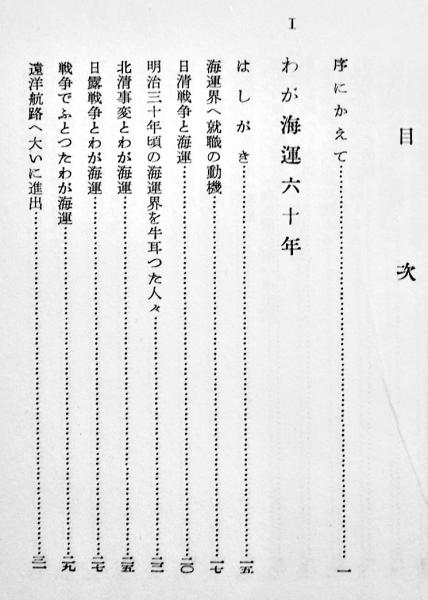 目次
序にかえて……一
I わが海運六十年
はしがき……一五
海運界へ就職の動機……一七
日清戦争と海運……二〇
明治三十年頃の海運界を牛耳つた人々……二二
北清事変とわが海運……二五
日露戦争とわが海運……二七
戦争でふとつたわが海運……二九
遠洋航路へ大いに進出……三一